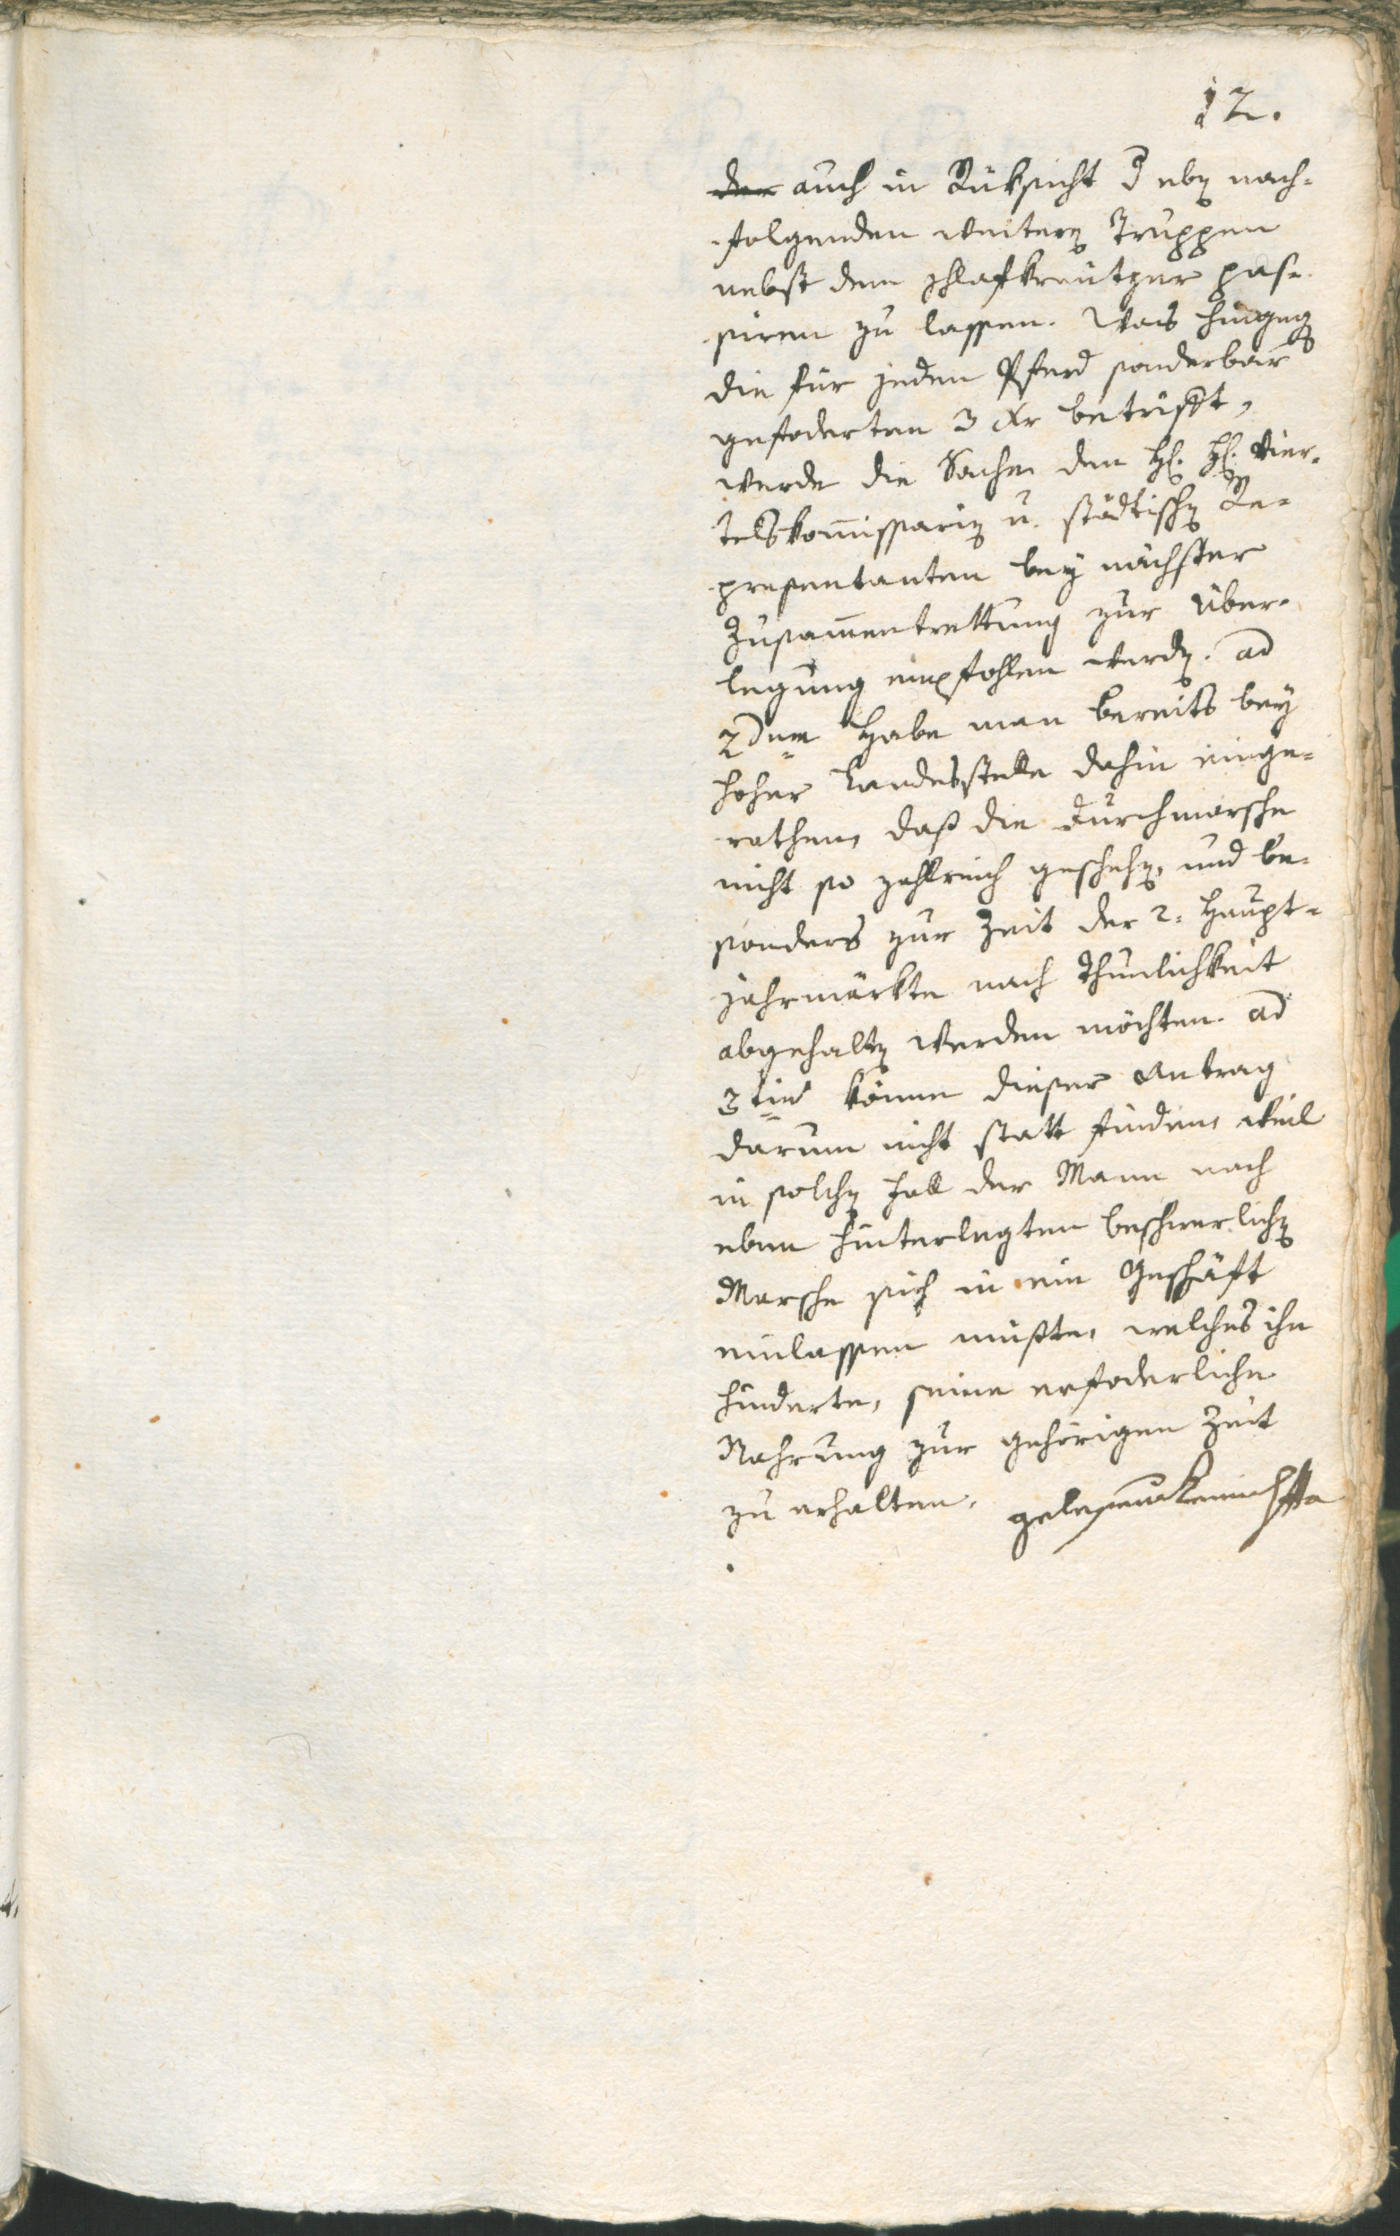 12.
der auch in Rüksicht d eben nach-
folgenden weitern Truppen
nebst dem Schlafkreutzer pas-
siren zu lassen. Was hingegen
die für jeden Pferd sonderbar
gefoderten 3 Xr betrifft,
werde die Sache den H. H. Vier-
telskommissarien u. städtischen Re-
presentanten bey nächster
Zusammentrettung zur Über-
legung empfohlen werden. ad
2dum Habe man bereits bey
hoher Landesstelle dahin einge-
rathen, daß die Durchmarsche
nicht so zahlreich geschehen, und be-
sonders zur Zeit der 2. Haupt-
jahrmärkte nach Thunlichkeit
abgehalten werden möchten. ad
3tium könne dieser Antrag
darum nicht statt finden, weil
in solchen Fall der Mann nach
eben hinterlegten beschwerlichen
Marsche sich in ein Geschäft
einlassen müßte, welches ihn
hinderte, seine erfoderliche
Nahrung zur gehörigen Zeit
zu erhalten.